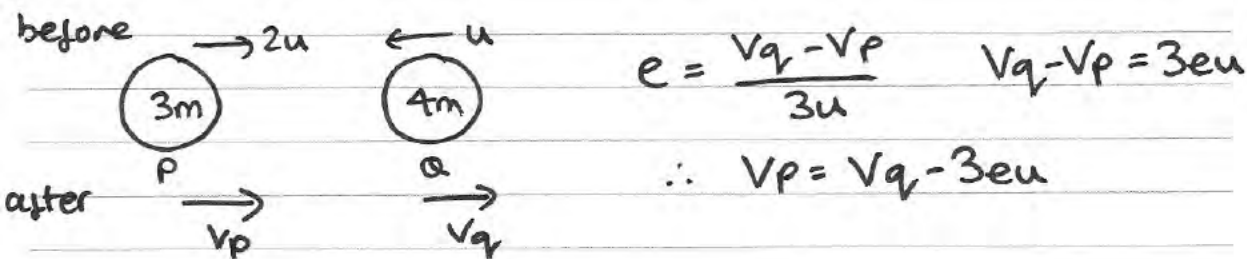 before → 2u ← u
3m 4m
P Q
after → Vp → Vq
e = (Vq - Vp) / 3u Vq - Vp = 3eu
∴ Vp = Vq - 3eu